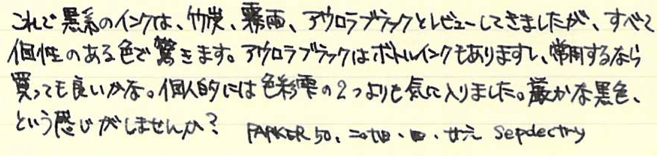 これで黒系のインクは、竹炭、霧雨、アウロラブラックとレビューしてきましたが、すべて
個性のある色で驚きます。アウロラブラックはボトルインクもありますし、常用するなら
買っても良いかな。個人的には色彩雫の2つよりも気に入りました。厳かな黒色、
という感じがしませんか? PARKER 50、